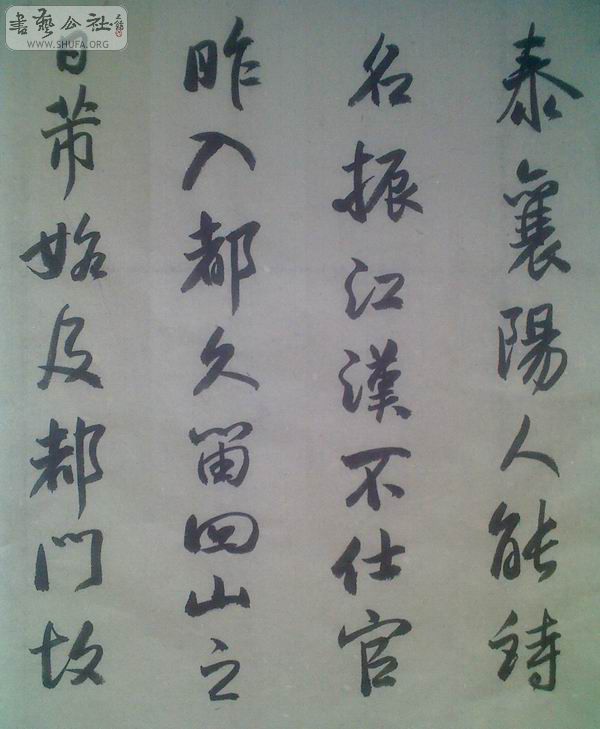 泰襄陽人能詩
名振江漢不仕官
昨入都久留四山之
日芾始及都門故
書藝公社
WWW.SHUFA.ORG